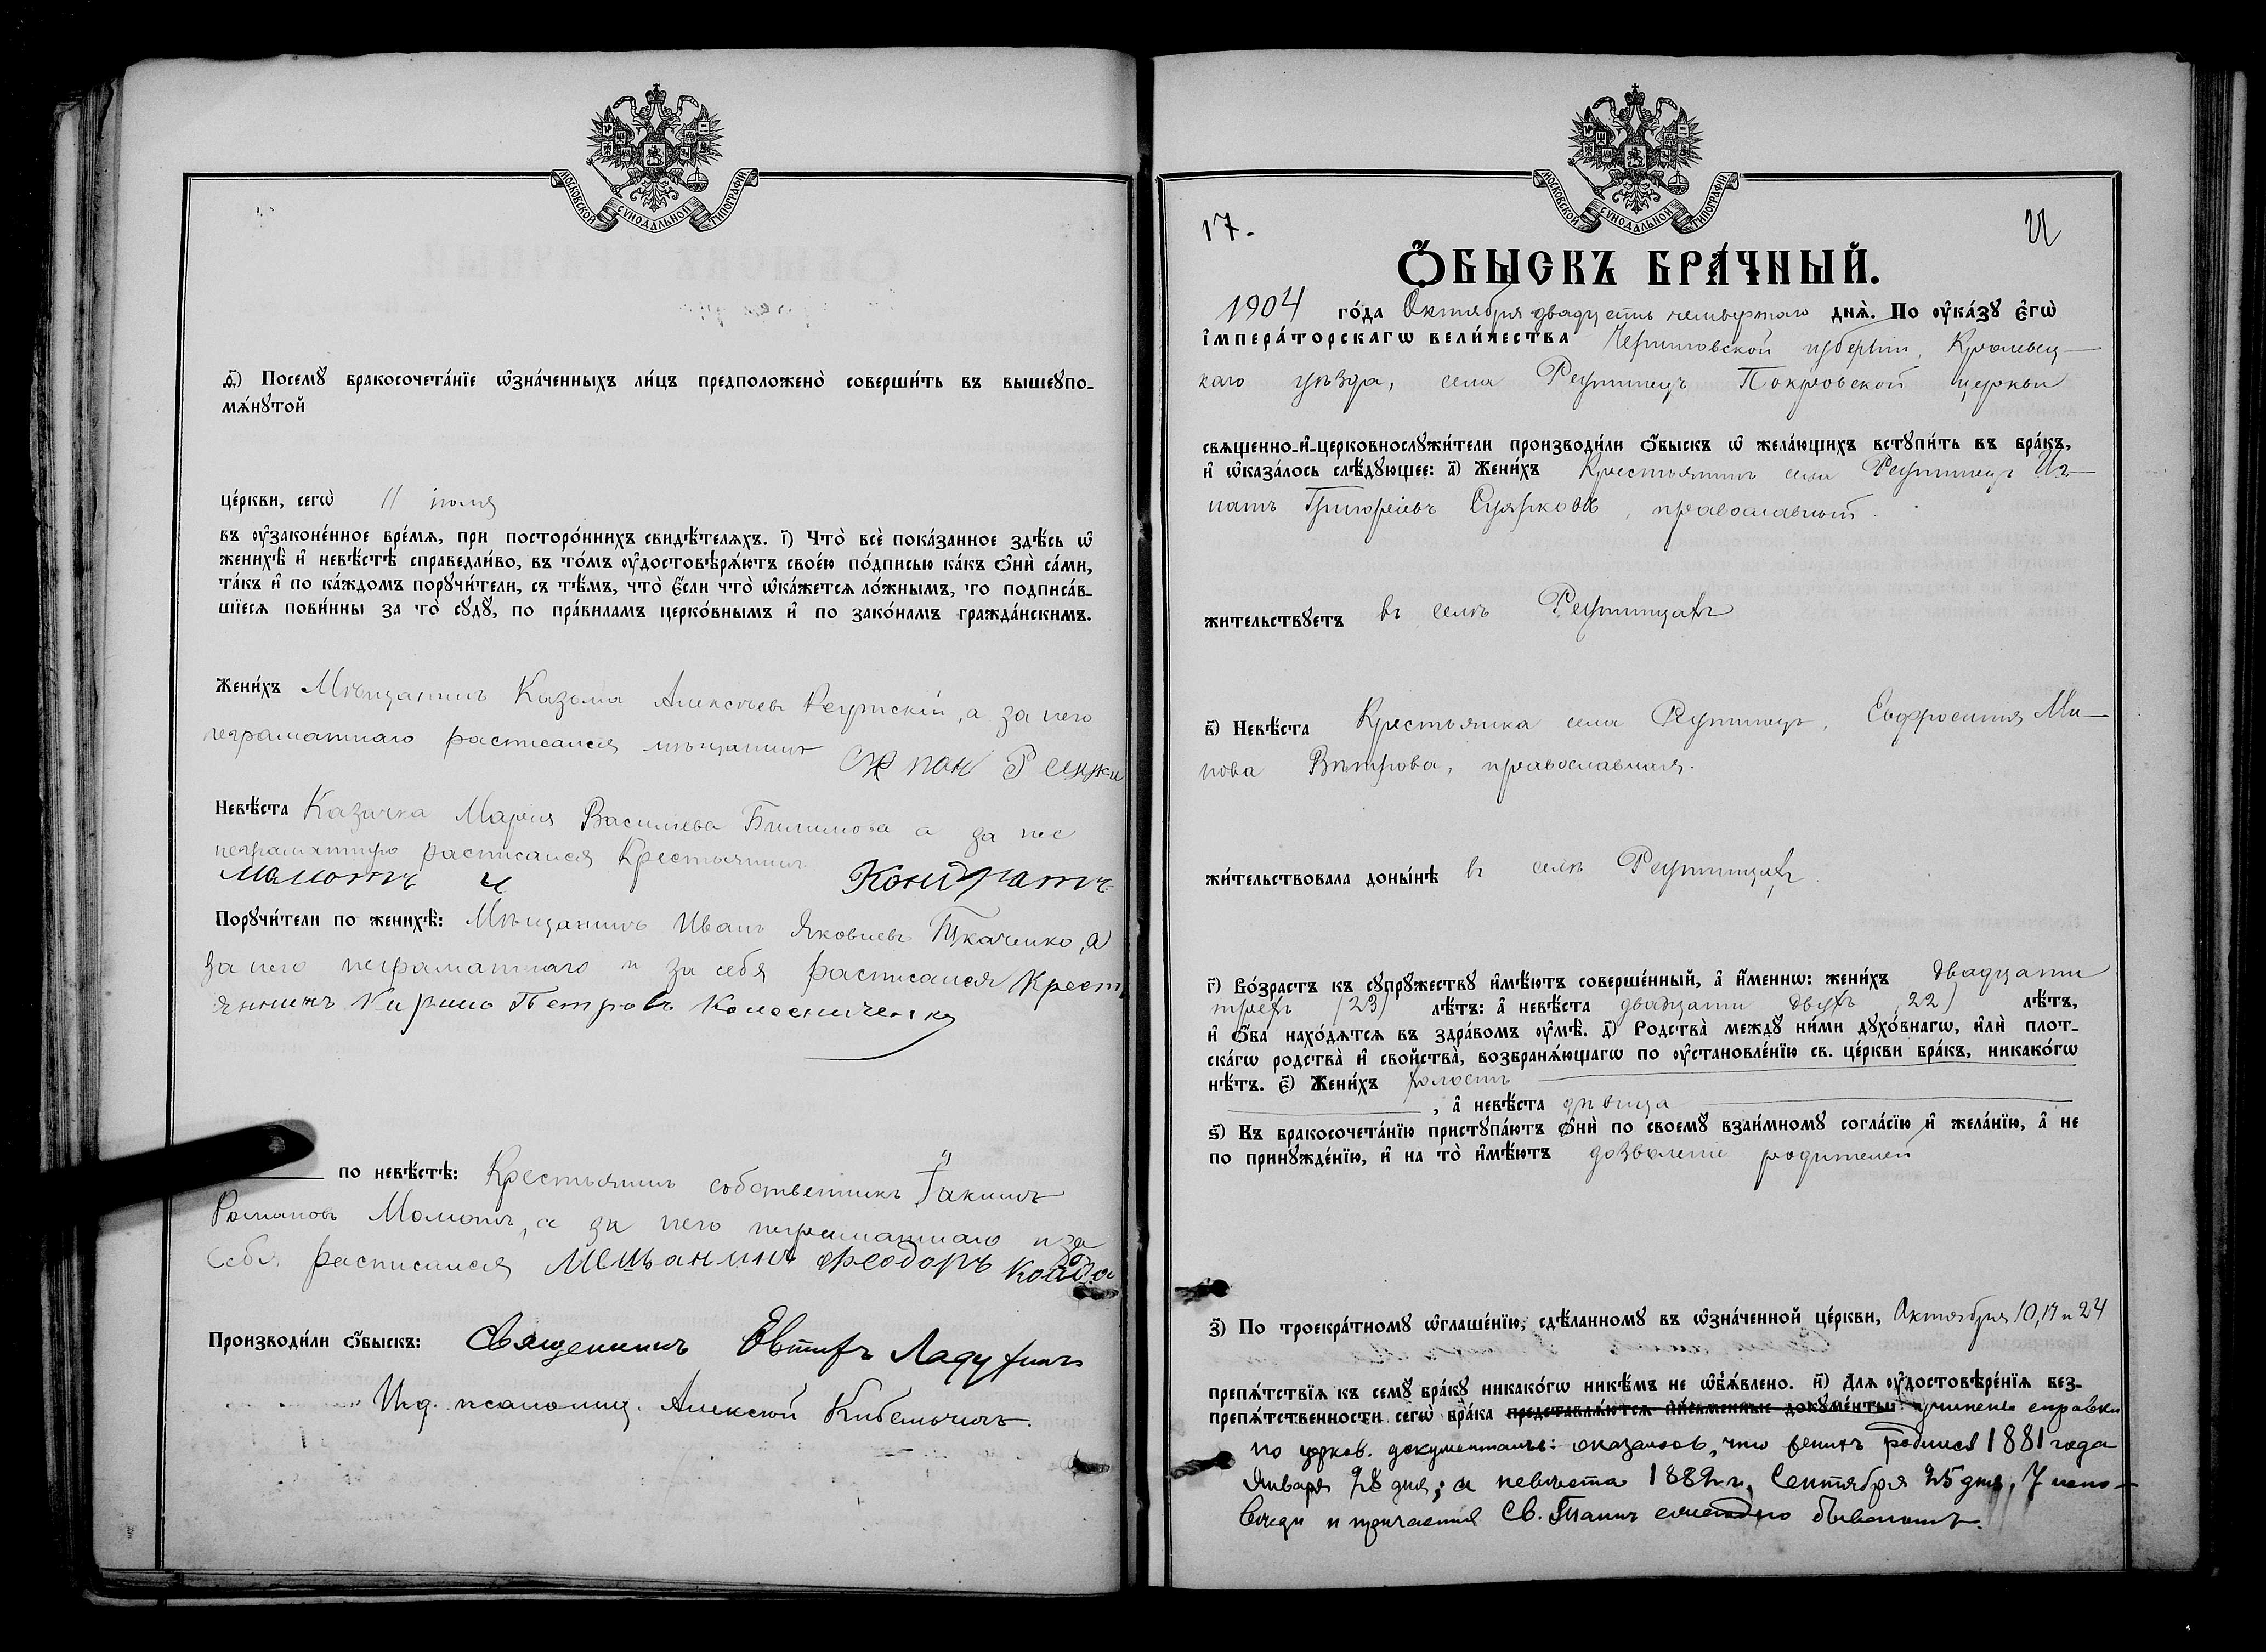 МОСКОВСКОЙ СѴНОДАЛЬНОЙ ТИПОГРАФІИ
ѳ҃) Посемꙋ̀ бракосочета́нїе ѡ҆зна́ченныхъ ли́цъ предположено̀ соверши́ть въ вышеꙋпо-
мѧ́нꙋтой
це́ркви, сегѡ̀ 11 іюля
въ ᲂу҆зако́ненное вре́мѧ, при посторо́ннихъ свидѣ́телѧхъ. і҃) Что̀ всѐ пока́занное здѣ́сь ѡ҆
женихѣ̀ и҆ невѣ́стѣ справедли́во, въ то́мъ ᲂу҆достовѣрѧ́ютъ свое́ю по́дписью ка́къ ѻ҆нѝ са́ми,
та́къ и҆ по ка́ждомъ порꙋчи́тели, съ тѣ́мъ, что̀ є҆́сли что̀ ѡ҆ка́жетсѧ ло́жнымъ, то подписа́в-
шїесѧ пови́нны за то̀ сꙋдꙋ̀, по пра́виламъ церко́внымъ и҆ по зако́намъ гражда́нскимъ.
Жени́хъ Мѣщанинъ Козьма Алексѣевъ Реутскій, а за него
неграматнаго расписался мѣщанинъ
Невѣ́ста Казачка Марія Васильева а за нее
неграматную расписался Крестьянинъ
Мамотъ Кондратъ
Порꙋчи́тели по женихѣ̀: Мѣщанинъ Иванъ Яковлевъ Ткаченко, а
за него неграматнаго и за себя расписался Крест
янинъ Кирило Петровъ Колосниченко
по невѣ́стѣ: Крестьянинъ собственникъ Іакимъ
Романовъ Мамотъ, а за него неграматнаго и за
себя расписался Мещанинъ Феодоръ Койда
Производи́ли ѻ҆́быскъ: Священникъ Евтихъ Ладухинъ
И.д. псаломщ. Алексѣй Кибальчичъ.
МОСКОВСКОЙ СѴНОДАЛЬНОЙ ТИПОГРАФІИ
17.
Ѻ҆́БЫСКЪ БРА́ЧНЫЙ.
1904 го́да Октября двадцать четвертаго днѧ̀. По ᲂу҆ка́зꙋ є҆гѡ̀
і҆мпера́торскагѡ вели́чества Черниговской губерніи, Кролевец-
каго уѣзда, села Реутинецъ Покровской церкви
свѧщенно-и҆-церковнослꙋжи́тели производи́ли ѻ҆́быскъ ѡ҆ жела́ющихъ встꙋпи́ть въ бра́къ,
и҆ ѡ҆каза́лось слѣ́дꙋющее: а҃) Жени́хъ Крестьянинъ села Реутинецъ Иг-
натъ Григоріевъ православный.
жи́тельствꙋетъ въ селѣ Реутинцахъ
в҃) Невѣ́ста Крестьянка села Реутинецъ, Евфросинія Ми-
нова Вѣтрова, православная.
жи́тельствовала донынѣ въ селѣ Реутинцахъ.
г҃) Во́зрастъ къ сꙋпрꙋ́жествꙋ и҆мѣ́ютъ соверше́нный, а҆ и҆́менно: жени́хъ двадцати
трехъ (23) лѣ́тъ: а҆ невѣ́ста двадцати двухъ (22) лѣ́тъ,
и҆ ѻ҆́ба нахо́дѧтсѧ въ здра́вомъ ᲂу҆мѣ̀. д҃) Родства̀ междꙋ̀ ни́ми дꙋхо́внагѡ, и҆лѝ плот-
ска́гѡ родства̀ и҆ свойства̀, возбранѧ́ющагѡ по ᲂу҆становле́нїю св. це́ркви бра́къ, никако́гѡ
нѣ́тъ. є҃) Жени́хъ холостъ
, а҆ невѣ́ста дѣвица
ѕ҃) Къ бракосочета́нїю пристꙋпа́ютъ ѻ҆нѝ по своемꙋ̀ взаи́мномꙋ согла́сїю и҆ жела́нїю, а҆ не
по принꙋжде́нїю, и҆ на то̀ и҆мѣ́ютъ дозволеніе родителей
з҃) По троекра́тномꙋ ѡ҆глаше́нїю, сдѣ́ланномꙋ въ ѡ҆зна́ченной це́ркви, Октября 10, 17 и 24
препѧ́тствїѧ къ семꙋ̀ бра́кꙋ никако́гѡ никѣ́мъ не ѡ҆б̾ѧ́влено. и҃) Длѧ ᲂу҆достовѣре́нїѧ без-
препѧ́тственности сегѡ̀ бра́ка представлѧ́ютсѧ пи́сьменные докꙋме́нты: учинена справка
по церков. документамъ: оказалось, что женихъ родился 1881 года
Января 28 дня; а невѣста 1882 г. Сентября 25 дня. У испо-
вѣди и причастія Св. Таинъ ежегодно бываютъ.